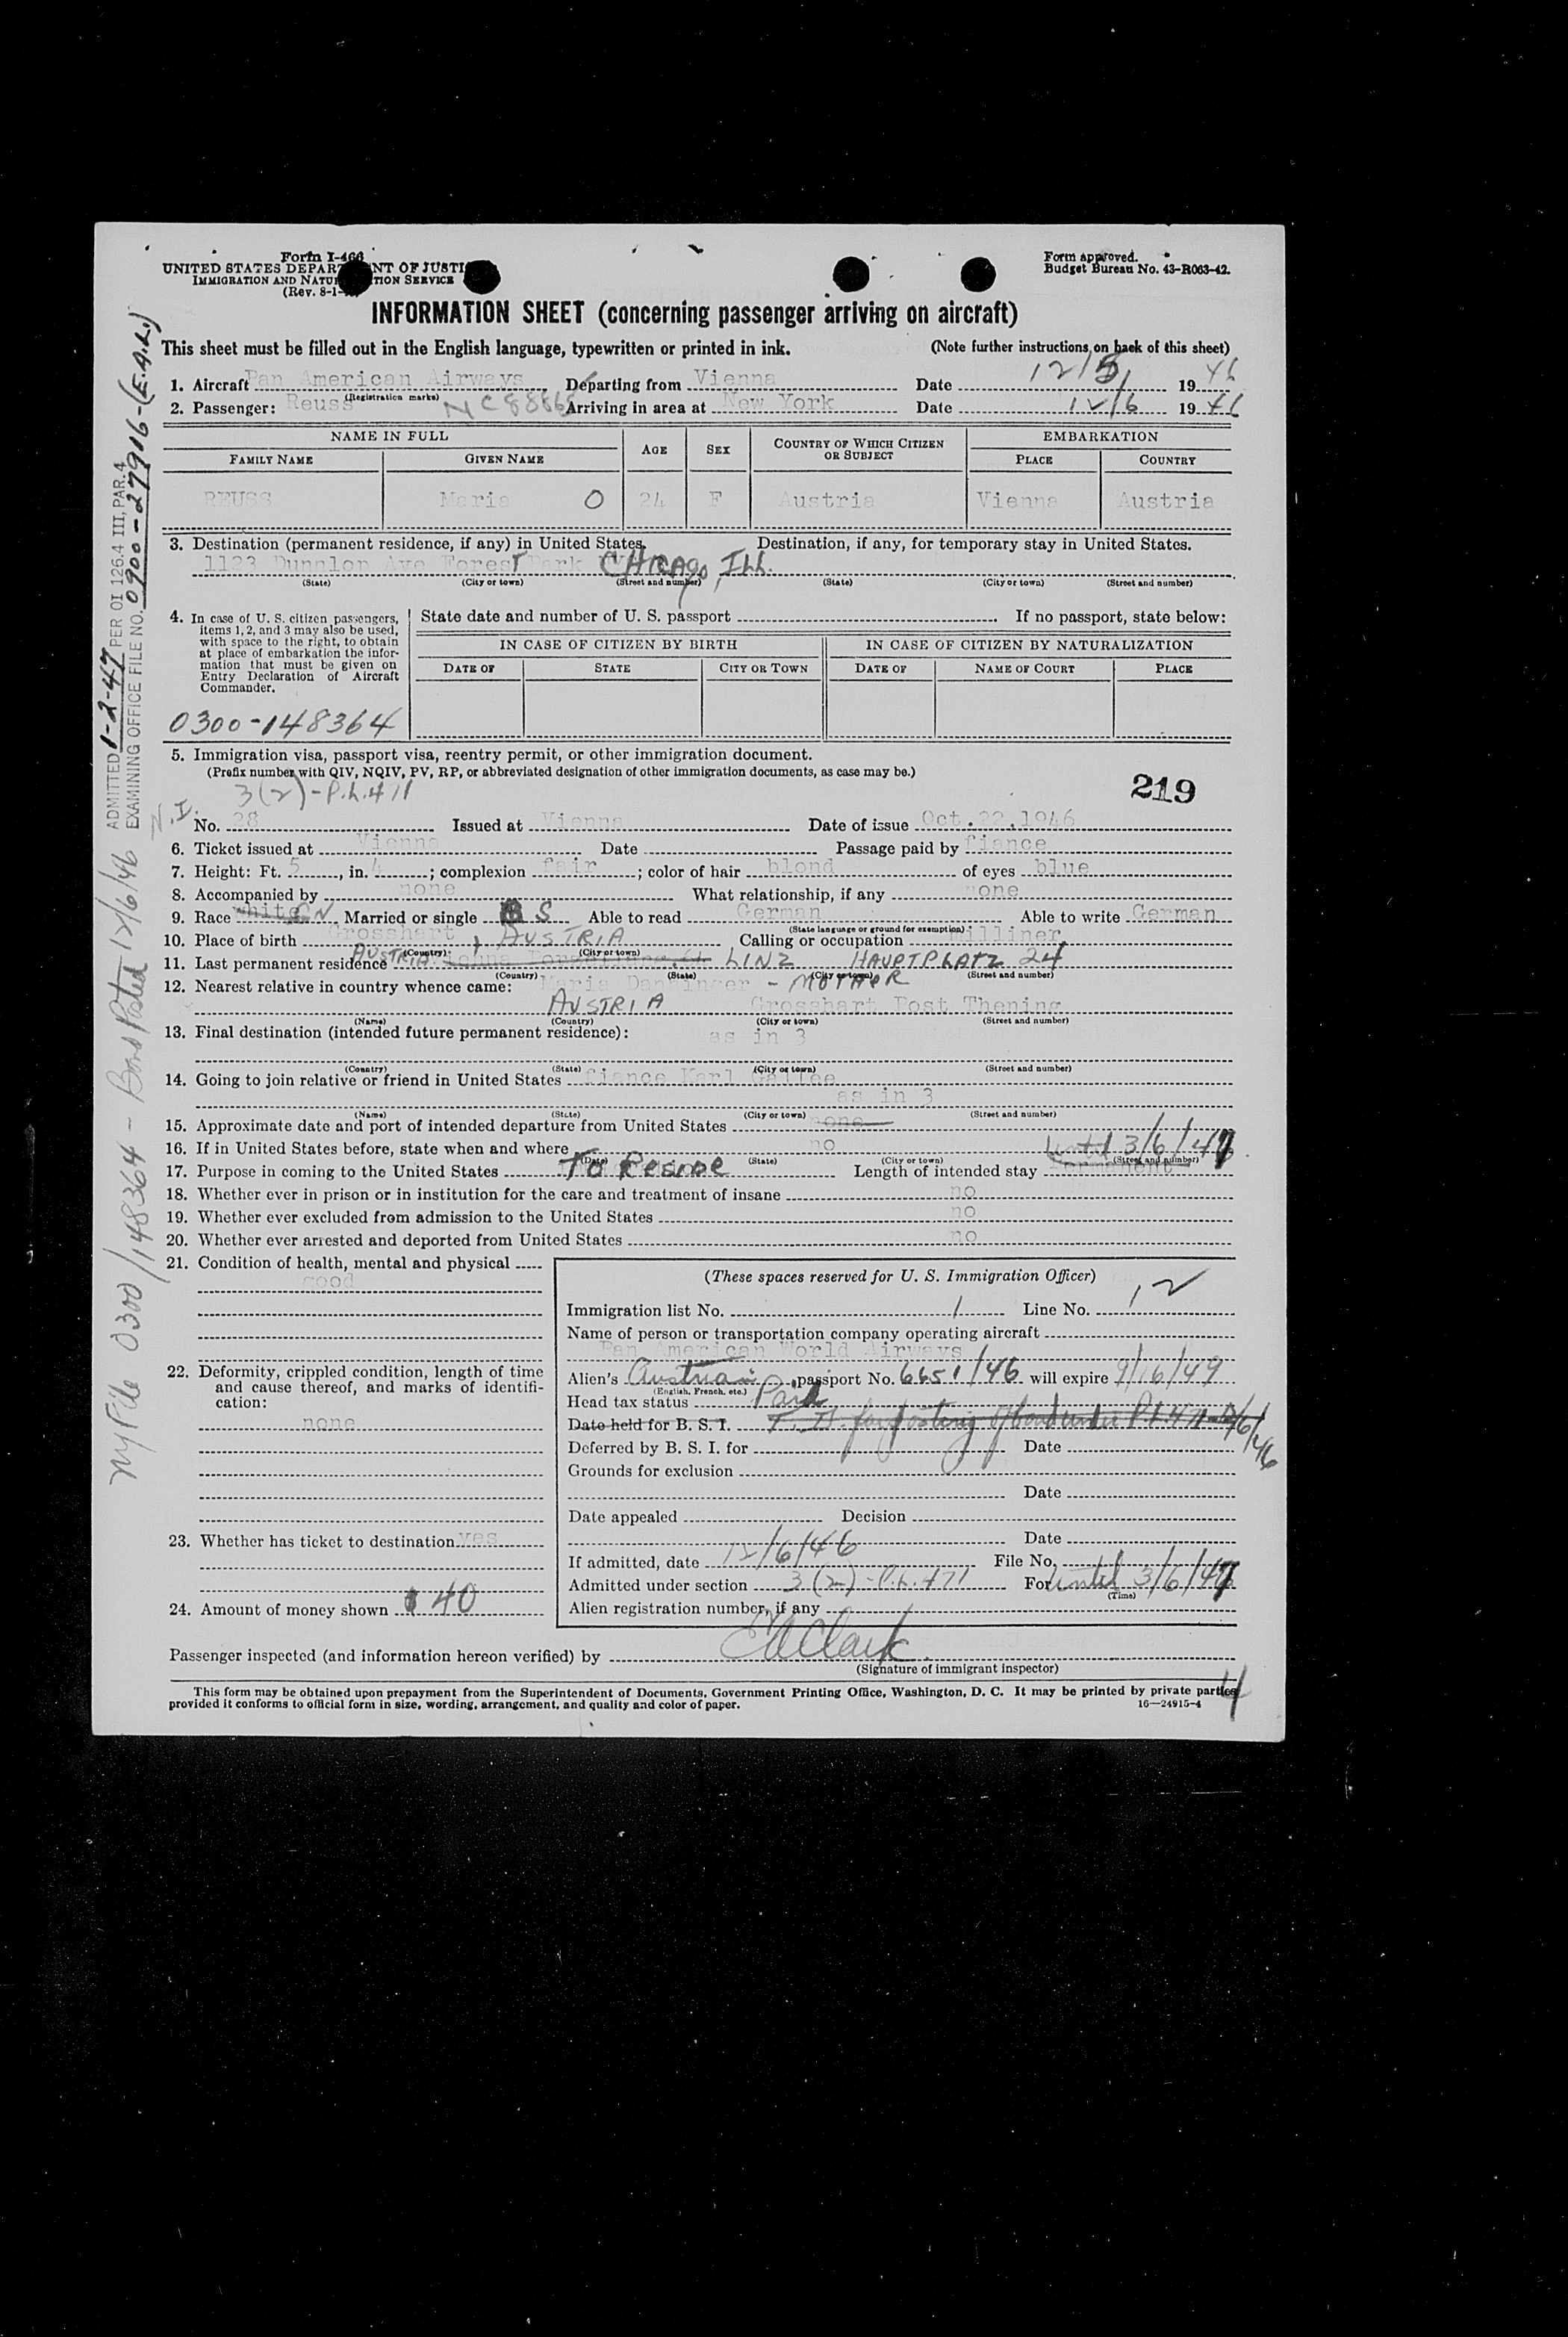 Form I-466
UNITED STATES DEPARTMENT OF JUSTICE
IMMIGRATION AND NATURALIZATION SERVICE
(Rev. 8-1-
Form approved.
Budget Bureau No. 43-R063-42.
INFORMATION SHEET (concerning passenger arriving on aircraft)
This sheet must be filled out in the English language, typewritten or printed in ink. (Note further instructions on back of this sheet)
1. Aircraft Pan American Airways Departing from Vienna Date 12/5/ 1946
(Registration marks)
2. Passenger: Reuss NC88865 Arriving in area at New York Date 12/6 1946
NAME IN FULL AGE SEX COUNTRY OF WHICH CITIZEN OR SUBJECT EMBARKATION
FAMILY NAME GIVEN NAME PLACE COUNTRY
REUSS Maria O 24 F Austria Vienna Austria
3. Destination (permanent residence, if any) in United States. Destination, if any, for temporary stay in United States.
1123 Dunglop Ave Forest Park CHICAGO, ILL.
(State) (City or town) (Street and number) (State) (City or town) (Street and number)
4. In case of U. S. citizen passengers, items 1, 2, and 3 may also be used, with space to the right, to obtain at place of embarkation the information that must be given on Entry Declaration of Aircraft Commander.
State date and number of U. S. passport If no passport, state below:
IN CASE OF CITIZEN BY BIRTH IN CASE OF CITIZEN BY NATURALIZATION
DATE OF STATE CITY OR TOWN DATE OF NAME OF COURT PLACE
0300-148364
5. Immigration visa, passport visa, reentry permit, or other immigration document.
(Prefix number with QIV, NQIV, PV, RP, or abbreviated designation of other immigration documents, as case may be.)
3(2)-P.L.471
219
No. 28 Issued at Vienna Date of issue Oct.22.1946
6. Ticket issued at Vienna Date Passage paid by fiance
7. Height: Ft. 5, in. 4; complexion fair; color of hair blond of eyes blue
8. Accompanied by none What relationship, if any none
9. Race white Married or single S Able to read German Able to write German
(State language or ground for exemption)
10. Place of birth Grosshart, AUSTRIA Calling or occupation Milliner
(Country) (City or town)
11. Last permanent residence AUSTRIA LINZ HAUPTPLATZ 24
(Country) (State) (City or town) (Street and number)
12. Nearest relative in country whence came: Maria - MOTHER
AUSTRIA Grosshart Post Thening
(Name) (Country) (City or town) (Street and number)
13. Final destination (intended future permanent residence): as in 3
(Country) (State) (City or town) (Street and number)
14. Going to join relative or friend in United States fiance Karl Gattee
as in 3
(Name) (State) (City or town) (Street and number)
15. Approximate date and port of intended departure from United States none
16. If in United States before, state when and where no
(Date) (State) (City or town) (Street and number)
until 3/6/47
17. Purpose in coming to the United States To Reside Length of intended stay permanent
18. Whether ever in prison or in institution for the care and treatment of insane no
19. Whether ever excluded from admission to the United States no
20. Whether ever arrested and deported from United States no
21. Condition of health, mental and physical
good
22. Deformity, crippled condition, length of time and cause thereof, and marks of identification:
none
23. Whether has ticket to destination yes
24. Amount of money shown $ 40
(These spaces reserved for U. S. Immigration Officer)
Immigration list No. 1 Line No. 12
Name of person or transportation company operating aircraft
Pan American World Airways
Alien's Austrian passport No. 6651/46 will expire 9/16/49
(English, French, etc.)
Head tax status Paid
Date held for B. S. I. T. D. for posting of bond under P.L. 471 - 12/6/46
Deferred by B. S. I. for Date
Grounds for exclusion
Date
Date appealed Decision
Date
If admitted, date 12/6/46 File No.
Admitted under section 3(2)-P.L.471 For until 3/6/47
(Time)
Alien registration number, if any
Passenger inspected (and information hereon verified) by EA Clark
(Signature of immigrant inspector)
This form may be obtained upon prepayment from the Superintendent of Documents, Government Printing Office, Washington, D. C. It may be printed by private parties
provided it conforms to official form in size, wording, arrangement, and quality and color of paper. 16—24915-4
4
ADMITTED 1-2-47 PER OI 126.4 III, PAR. 4
EXAMINING OFFICE FILE NO. 0900-27916-(E.A.L.)
NY File 0300/148364 - Bond Posted 12/6/46